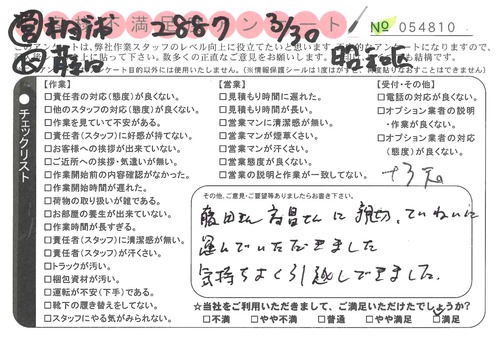 お客様満足度アンケート
2887 3/30
№ 054810
昭和区
このアンケートは、弊社作業スタッフのレベル向上に役立てたいと思います。
※アンケート目的以外には使用いたしません。(※情報保護シールは1度はがすと、再度貼りなおすことはできません)
チェックリスト
【作業】
□責任者の対応(態度)が良くない。
□他のスタッフの対応(態度)が良くない。
□作業を見ていて不安がある。
□責任者(スタッフ)に好感が持てない。
□お客様への挨拶が出来ていない。
□ご近所への挨拶・気遣いが無い。
□作業開始前の内容確認がなかった。
□作業開始時間が遅れた。
□荷物の取り扱いが雑である。
□お部屋の養生が出来ていない。
□作業時間が長すぎる。
□責任者(スタッフ)に清潔感が無い。
□責任者(スタッフ)が汗くさい。
□トラックが汚い。
□梱包資材が汚い。
□運転が不安(下手)である。
□靴下の履き替えをしてない。
□スタッフにやる気がみられない。
【営業】
□見積もり時間に遅れた。
□見積もり時間が長い。
□営業マンに清潔感が無い。
□営業マンが煙草くさい。
□営業マンが汗くさい。
□営業態度が良くない。
□営業の説明と作業が一致してない。
【受付・その他】
□電話の対応が良くない。
□オプション業者の説明
・作業が良くない。
□オプション業者の対応
(態度)が良くない。
その他、ご意見・ご要望等ありましたらお書き下さい。
藤田さん 高昌さんに親切、ていねいに
運んでいただきました
気持ちよく引越しできました。
☆当社をご利用いただきまして、ご満足いただけたでしょうか?
□不満 □やや不満 □普通 □やや満足 □満足